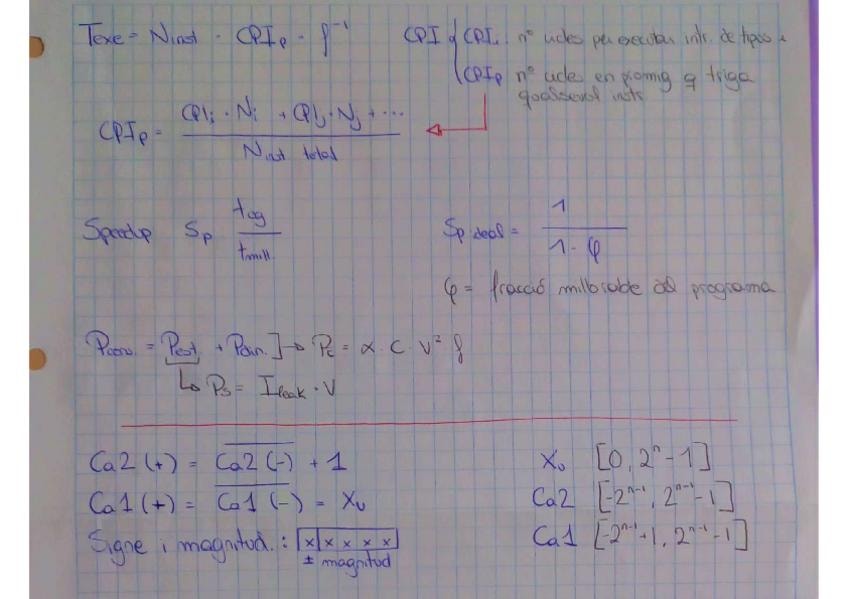 Texe = Ninst · CPIp · f⁻¹
CPI { CPIi : nº cicles per executar instr. de tipos i
CPIp nº cicles en promig q triga
qualsevol instr.
CPIp = (CPIi · Ni + CPIj · Nj + ...) / Ninst total
Speedup Sp tog / tmill.
Sp ideal = 1 / (1 - φ)
φ = fracció millorable del programa
Pcons. = Pest + Pdin. ] → Pc = α · C · V² f
↳ Ps = Ileak · V
Ca2 (+) = C̅a̅2̅ ̅(̅-̅)̅ + 1
Xu [0, 2ⁿ - 1]
Ca1 (+) = C̅a̅1̅ ̅(̅-̅)̅ = Xu
Ca2 [-2ⁿ⁻¹, 2ⁿ⁻¹ - 1]
Signe i magnitud. : x x x x x
± magnitud
Ca1 [-2ⁿ⁻¹ + 1, 2ⁿ⁻¹ - 1]